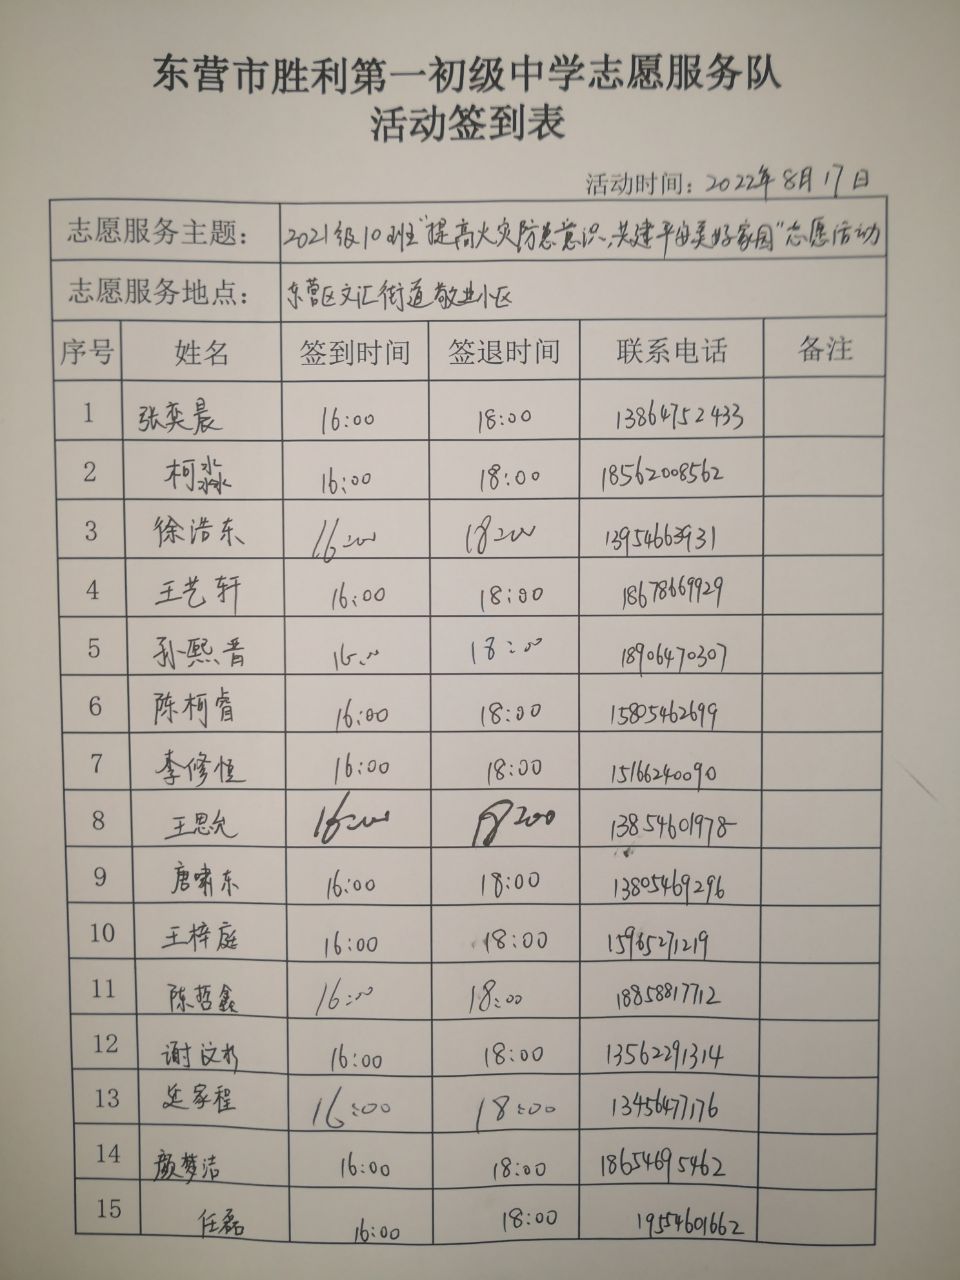 东营市胜利第一初级中学志愿服务队
活动签到表
活动时间：2022年8月17日
志愿服务主题： 2021级10班"提高火灾防患意识，共建平安美好家园"志愿活动
志愿服务地点： 东营区文汇街道敬业小区
序号 姓名 签到时间 签退时间 联系电话 备注
1 张奕晨 16:00 18:00 13864752433
2 柯淼淼 16:00 18:00 18562008562
3 徐浩东 16:00 18:00 13954663931
4 王艺轩 16:00 18:00 18678669929
5 孙熙晋 16:00 18:00 18906470307
6 陈柯睿 16:00 18:00 15805462699
7 李修恒 16:00 18:00 15166240090
8 王思允 16:00 18:00 13854601978
9 唐啸东 16:00 18:00 13805469296
10 王梓庭 16:00 18:00 15965271219
11 陈哲鑫 16:00 18:00 18858817712
12 谢汶杉 16:00 18:00 13562291314
13 家程 16:00 18:00 13456477176
14 颜梦洁 16:00 18:00 18654695462
15 任磊 16:00 18:00 19554601662